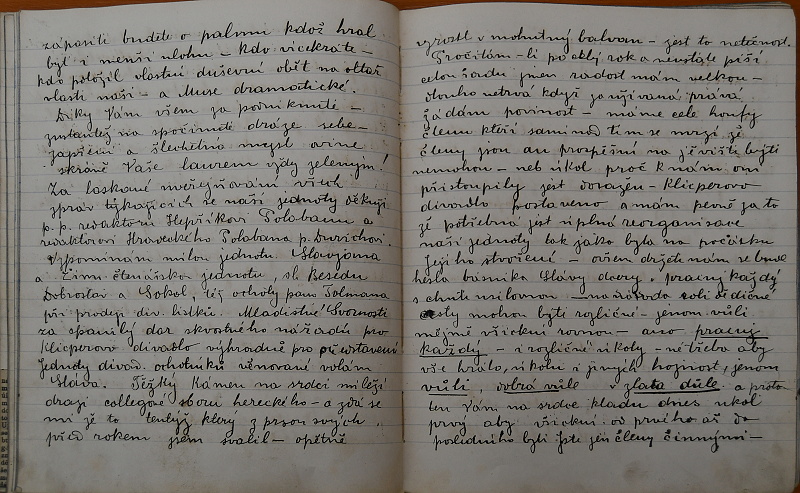 zápasiti budete o palmu kdož hral
byť i menší ulohu – kdo vícekráte –
kdo položil vlastní duševní obět na oltář
vlasti naší – a Muse dramatické.
Díky Vám všem za podniknuté –
zustantež na spočinuté dráze sebe-
zapření a šlechetná mysl ovine
skráně Vaše laurem vždy zeleným!
Za laskavé uveřejňován všech
zpráv týkajících se naší jednoty děkuji
p. p. redaktoru Hepříkovi Polabanu a
redaktorovi Hradeckého Polabana p. Durichovi.
Vzpomínám milou jednotu Slavojoma
a Žinu čtenářskou jednotu, sl. Besedu
Dobroslav a Sokol, též ochoty pana Tolmana
při prodeji div. lístků. Mladistvé Svornosti
za spanilý dar skvostného nářadí pro
Klicperovo divadlo výhradně pro představení
Jednoty divad. ochotníků věnované volám
Sláva. Těžký kámen na srdci milejší
drazí collegové sboru hereckého – a zdá se
mi že to tentýž který z prsou svých
před rokem jsem svalil – opětně
vzrostl v mohutný balvan – jest to netečnost.
Pročítám-li po celý rok a neustále píší
celou řadu jmen radost mám velkou –
dlouho netrvá když zaužívaná práva
žádám povinost – máme celé houfy
členu kteří sami nad tím se mrzí že
členy jsou an prospěšní na jeviště býti
nemohou – neb úkol proč k nám oni
přistoupily jest doražen – Klicperovo
divadlo postaveno a mám pevně za to
že potřebná jest úplná reorganisace
naší jednoty tak jako byla na počátku
Jejího stvoření – ovšem držeti nám se bude
hesla básníka Slávy dcery, pracuj každý
s chutí usilovnou – na národa roli dědičné
cesty mohou býti rozličné – jenom vůli
mějmě všickni rovnou – ano pracuj
každý – i rozličné úkoly – netřeba aby
vše hrálo, nikoliv i jiných hojnost, jenom
vůli, dobrá vůle v zlata důle a proto
ten Vám na srdce kladu dnes úkol
prvý aby všickni od prvého až do
posledního byli jste jen členy činnými –